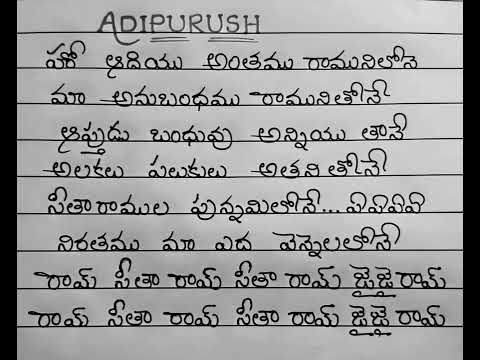 ADIPURUSH
హో ఆదియు అంతము రామునిలోనే
మా అనుబంధము రామునితోనే
ఆప్తుడు బంధువు అన్నియు తానే
అలకలు పలుకులు అతనితోనే
సీతారాముల పున్నమిలోనే... ఏఏఏఏ
నిరతము మా ఎద వెన్నెలలోనే
రామ్ సీతా రామ్ సీతా రామ్ జైజై రామ్
రామ్ సీతా రామ్ సీతా రామ్ జైజై రామ్